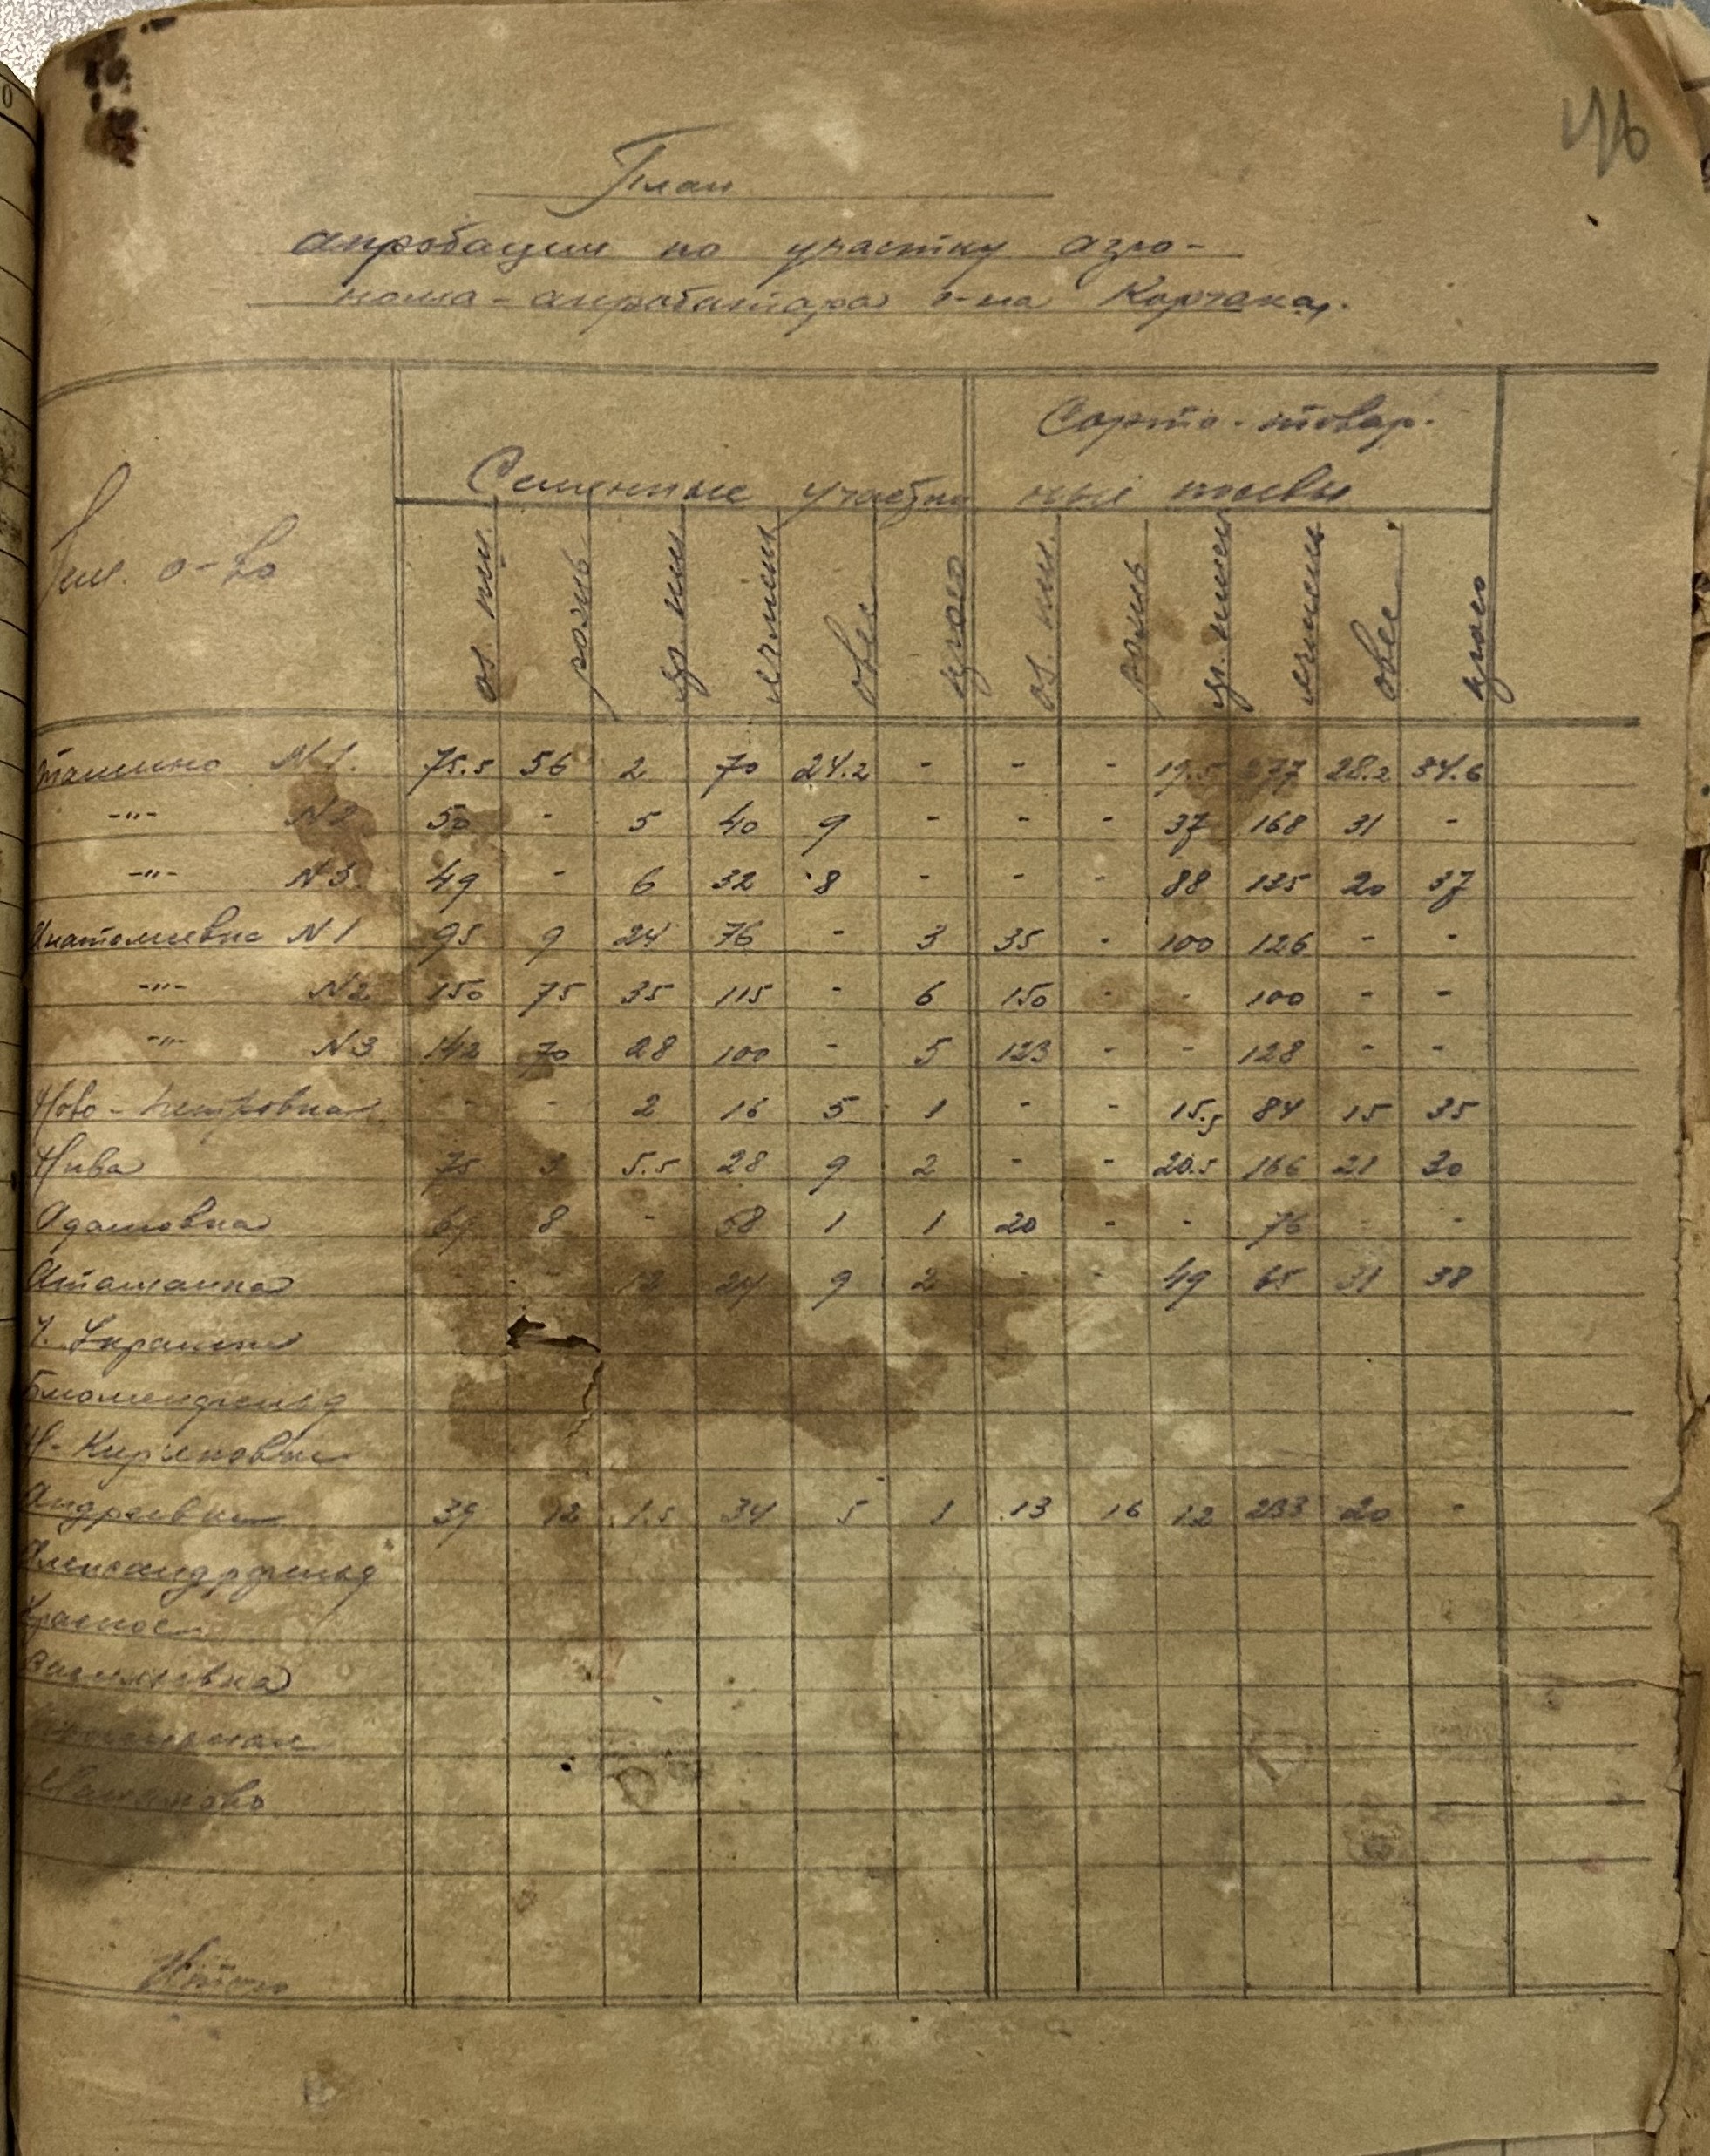 План
апробации по участку агро-
нома-апробатора г-на Корчака.
Зем. о-во
Семенные участки
Сорто-товар-
ные посевы
оз. пш. рожь яр. пш ячмень овес просо оз. пш. рожь яр. пшен ячмень овес просо
Ташино N1. 75.5 56 2 70 24.2 - - - 19.5 277 28.2 34.6
-"- N2 50 - 5 40 9 - - - 37 168 31 -
-"- N3. 49 - 6 32 8 - - - 88 135 20 37
Анатольевка N1 95 9 24 76 - 3 35 - 100 126 - -
-"- N2 150 75 35 115 - 6 150 - - 100 - -
-"- N3 142 70 28 100 - 5 123 - - 128 - -
Ново-Петровка - - 2 16 5 1 - - 15.5 84 15 35
Нива 75 3 5.5 28 9 2 - - 20.5 166 21 30
Адамовка 64 8 - 58 1 1 20 - - 76 - -
Аташанка - - 12 24 9 2 - - 49 65 31 38
Украинка
Блюменфельд
Н-Кирьяковка
Андреевка 39 12 1.5 34 5 1 13 16 12 233 20 -
Александрфельд
Красное
Васильевка
Итого